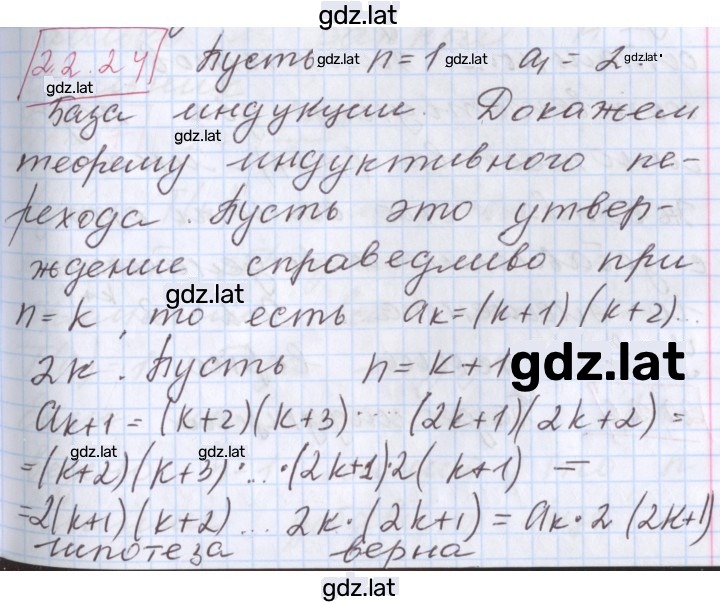 gdz.lat
22.24 Пусть n = 1 a₁ = 2.
gdz.lat gdz.lat gdz.lat
gdz.lat
База индукции. Докажем
gdz.lat
теорему индуктивного пе-
рехода. Пусть это утвер-
ждение справедливо при
gdz.lat
n = k, то есть aₖ = (k+1)(k+2)...
2k. Пусть n = k+1
gdz.lat
aₖ₊₁ = (k+2)(k+3)....(2k+1)(2k+2) =
gdz.lat gdz.lat
= (k+2)(k+3)·...·(2k+1)·2(k+1) =
= 2(k+1)(k+2)... 2k·(2k+1) = aₖ·2(2k+1)
gdz.lat gdz.lat
гипотеза верна
gdz.lat